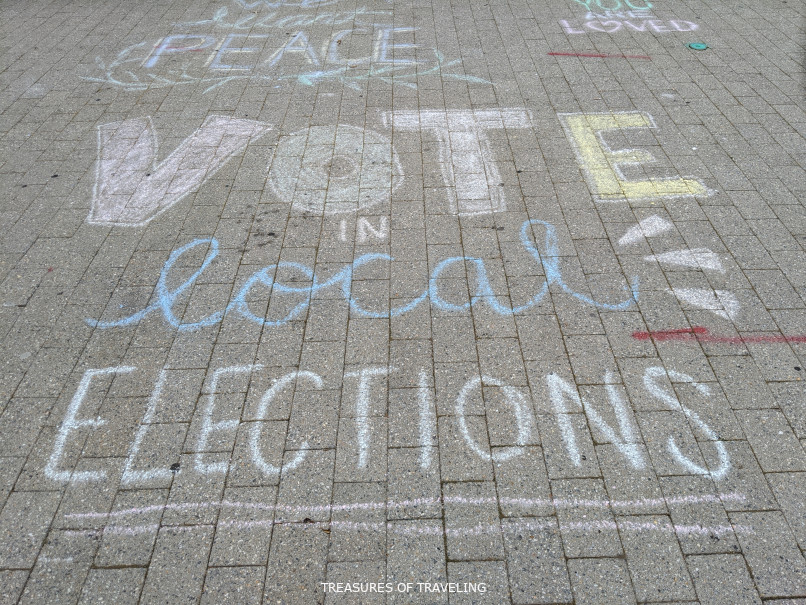 PEACE
YOU
ARE
LOVED
VOTE
IN
local
ELECTIONS
TREASURES OF TRAVELING